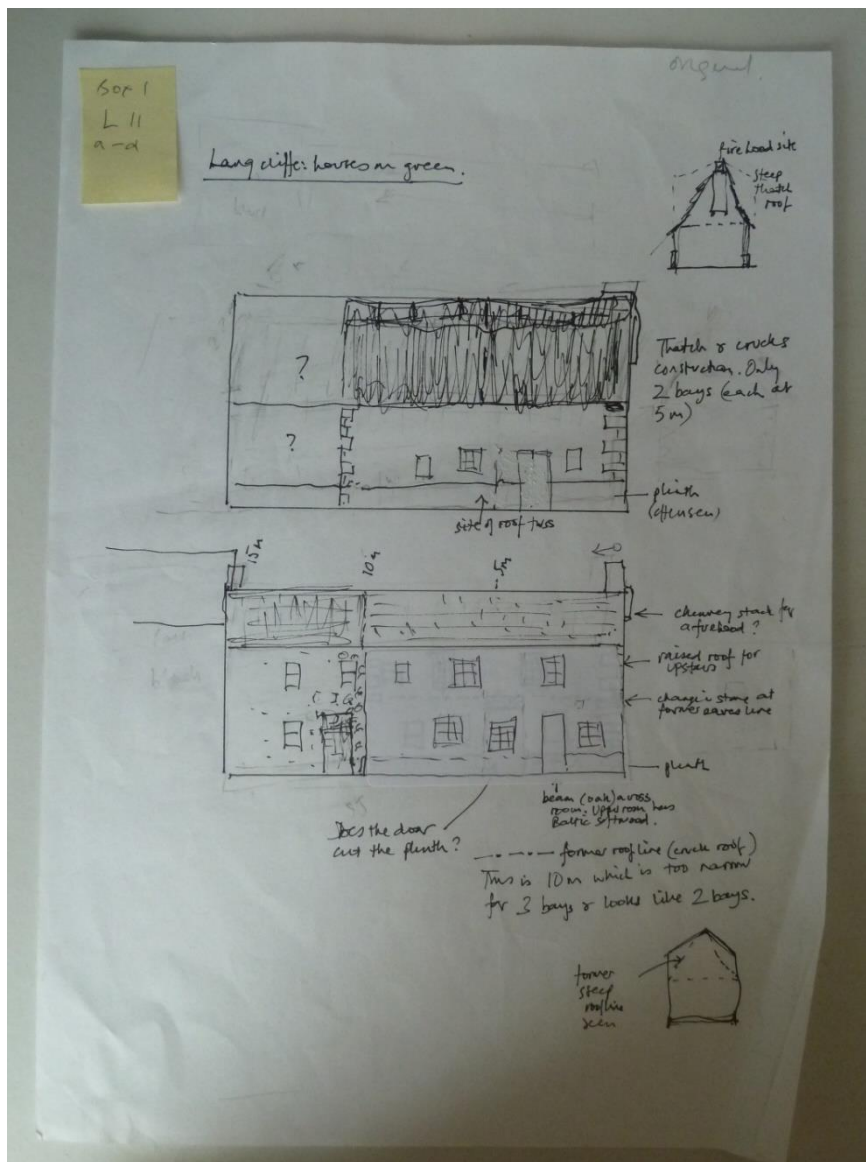 original.
Box 1
L 11
a-d
Langcliffe: houses on green.
Firehood site
steep
thatch
roof
Thatch & crucks
construction. Only
2 bays (each at
5m)
?
?
plinth
(often seen)
site of roof truss
15m
10m
5m
chimney stack for
a firehood?
raised roof for
upstairs
change in stone at
former eaves line
plinth
beam (oak) across
room. Upper room has
Baltic softwood.
Does the door
cut the plinth?
former roof line (cruck roof)
This is 10m which is too narrow
for 3 bays & looks like 2 bays.
former
steep
roofline
seen